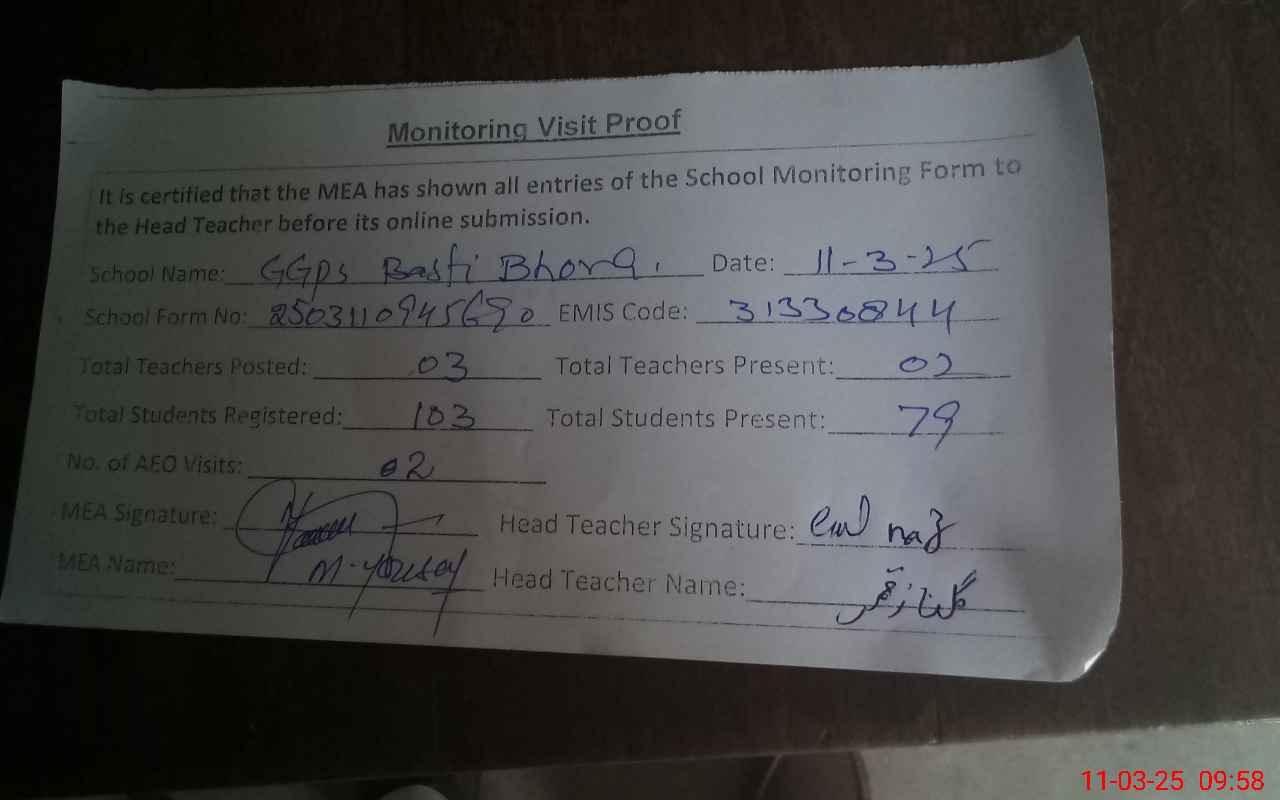 Monitoring Visit Proof
It is certified that the MEA has shown all entries of the School Monitoring Form to
the Head Teacher before its online submission.
School Name: GGPS Basti Bhora. Date: 11-3-25
School Form No: 250311094569 0 EMIS Code: 31330844
Total Teachers Posted: 03 Total Teachers Present: 02
Total Students Registered: 103 Total Students Present: 79
No. of AEO Visits: 02
MEA Signature: Head Teacher Signature: naz
MEA Name: M. Yousaf Head Teacher Name:
11-03-25 09:58